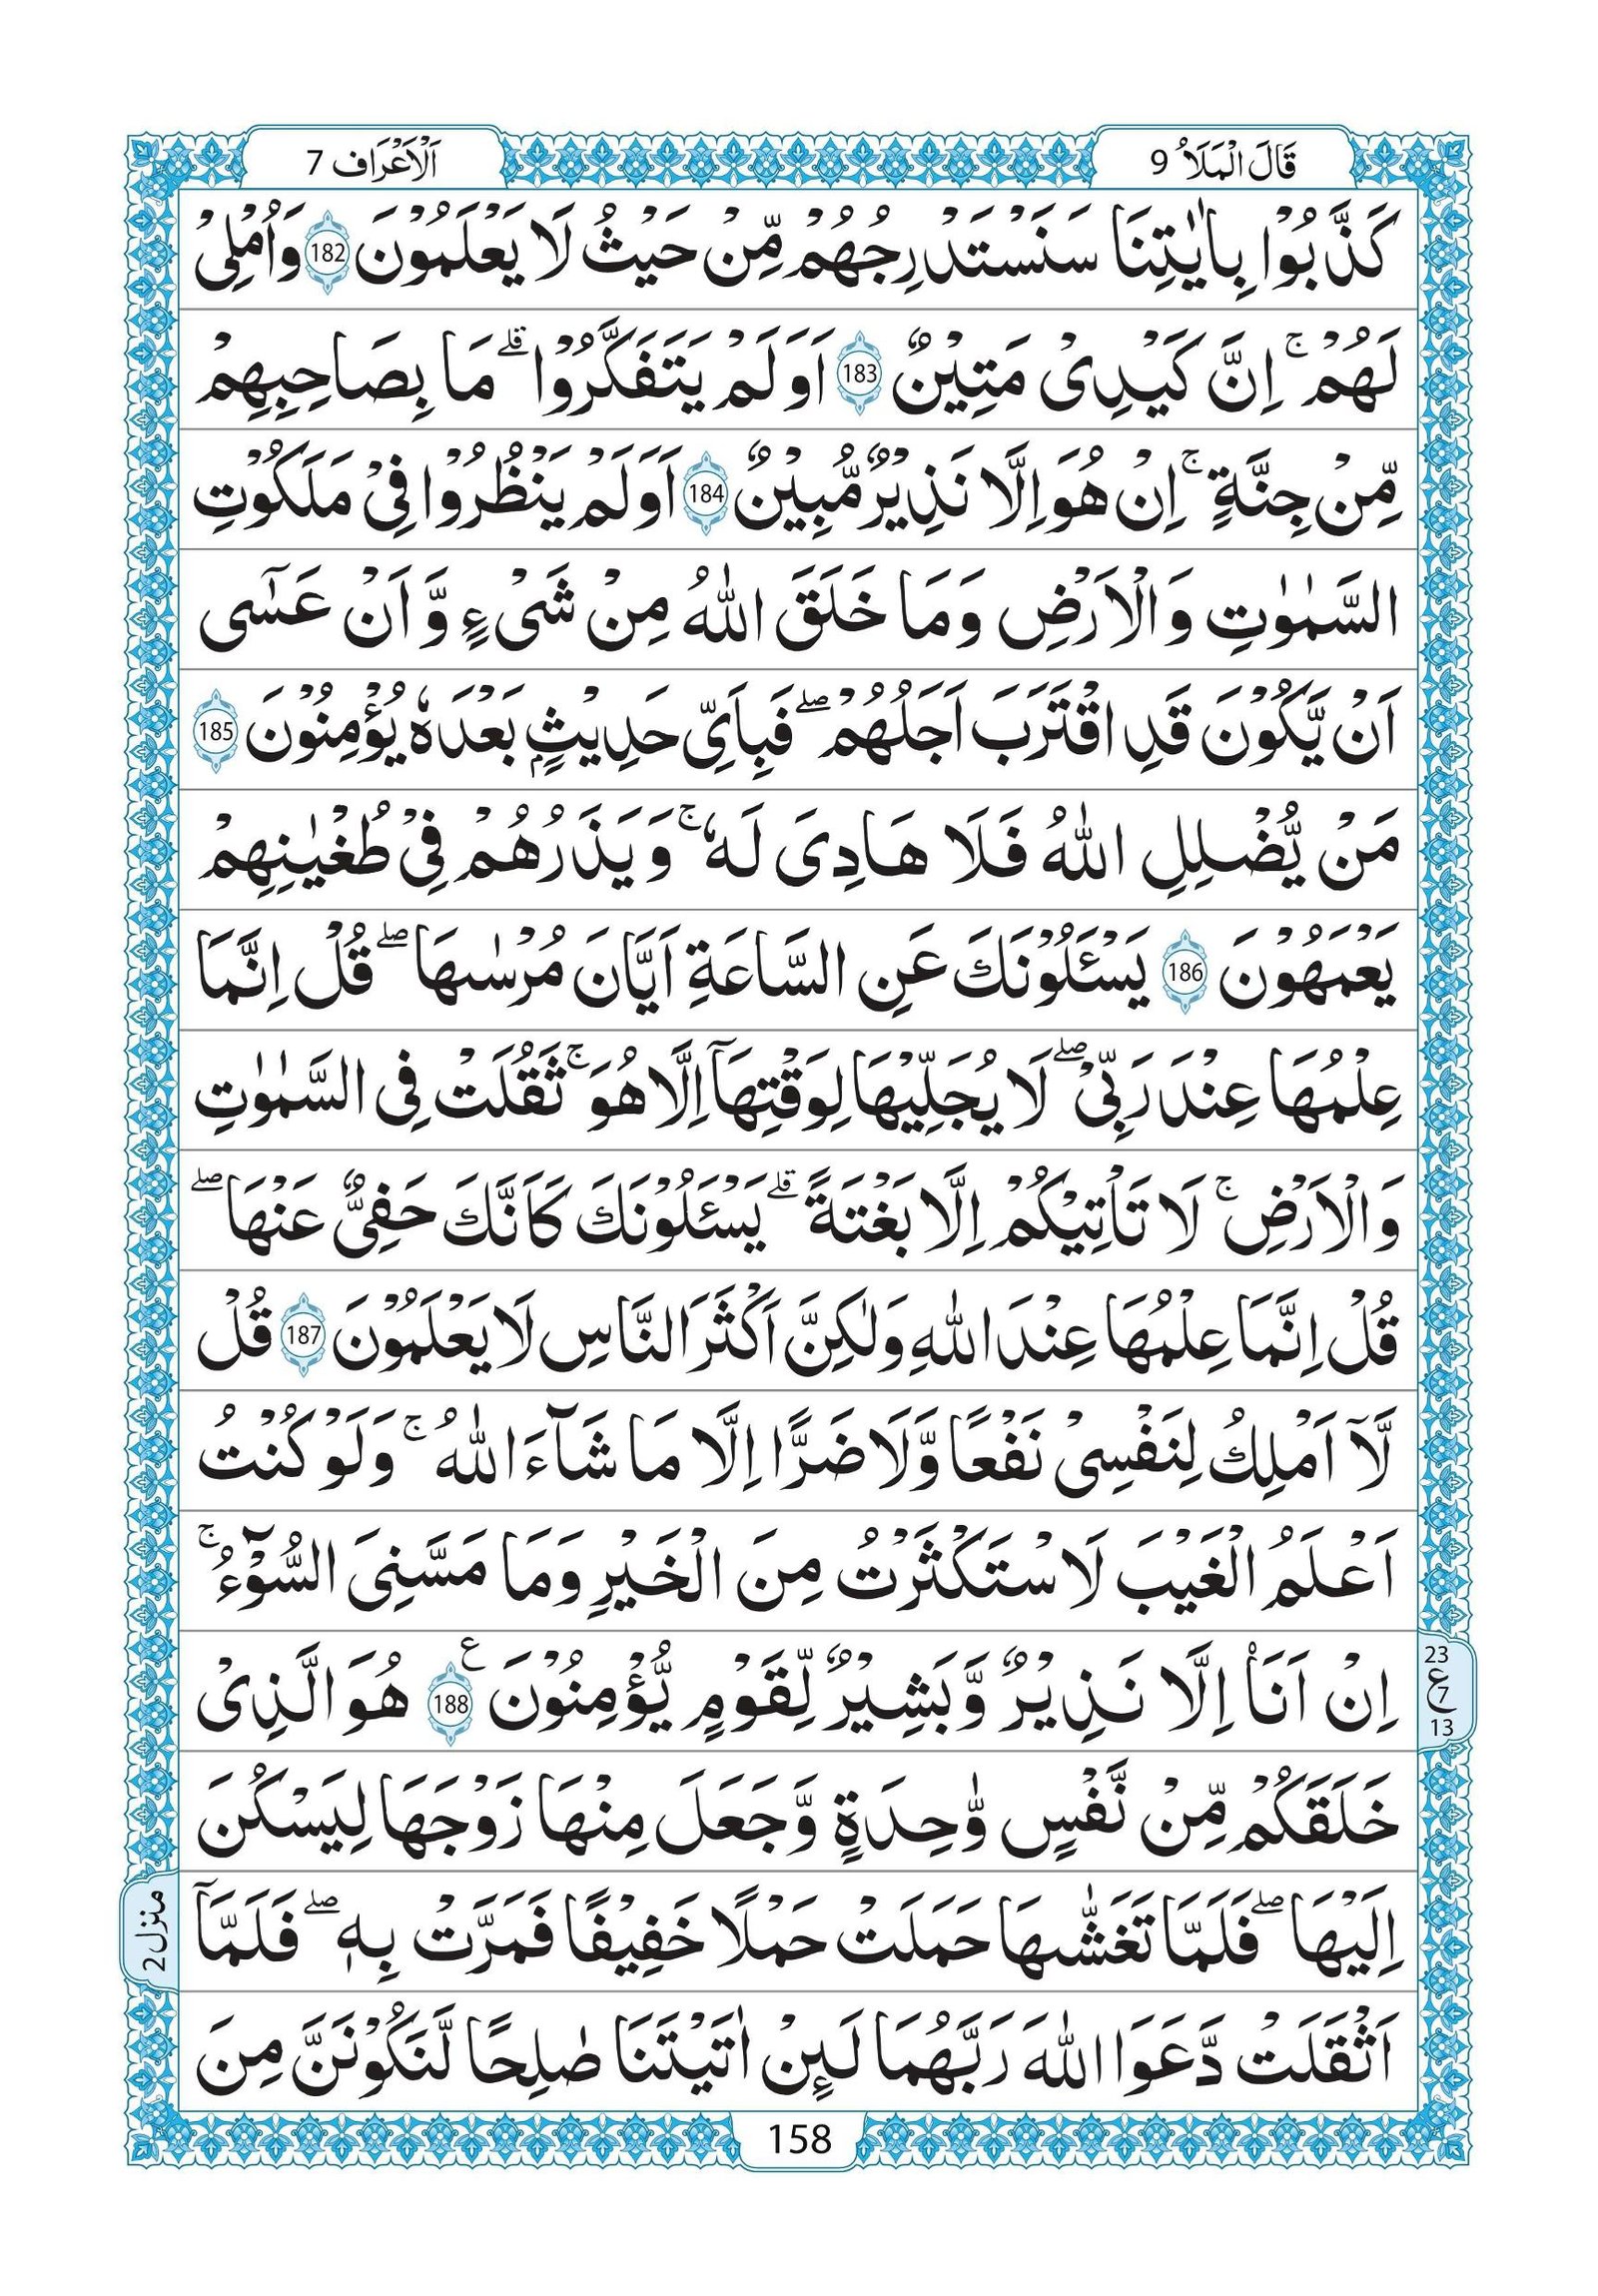 قَالَ الْمَلَاُ 9
اَلْاَعْرَاف 7
كَذَّبُوْا بِاٰيٰتِنَا سَنَسْتَدْرِجُهُمْ مِّنْ حَيْثُ لَا يَعْلَمُوْنَ 182 وَاُمْلِيْ
لَهُمْ ۚ اِنَّ كَيْدِيْ مَتِيْنٌ 183 اَوَلَمْ يَتَفَكَّرُوْا ۗ مَا بِصَاحِبِهِمْ
مِّنْ جِنَّةٍ ۚ اِنْ هُوَ اِلَّا نَذِيْرٌ مُّبِيْنٌ 184 اَوَلَمْ يَنْظُرُوْا فِيْ مَلَكُوْتِ
السَّمٰوٰتِ وَالْاَرْضِ وَمَا خَلَقَ اللّٰهُ مِنْ شَيْءٍ وَّ اَنْ عَسٰٓى
اَنْ يَّكُوْنَ قَدِ اقْتَرَبَ اَجَلُهُمْ ۖ فَبِاَيِّ حَدِيْثٍۭ بَعْدَهٗ يُؤْمِنُوْنَ 185
مَنْ يُّضْلِلِ اللّٰهُ فَلَا هَادِيَ لَهٗ ۚ وَيَذَرُهُمْ فِيْ طُغْيٰنِهِمْ
يَعْمَهُوْنَ 186 يَسْـَٔلُوْنَكَ عَنِ السَّاعَةِ اَيَّانَ مُرْسٰىهَا ۖ قُلْ اِنَّمَا
عِلْمُهَا عِنْدَ رَبِّيْ ۖ لَا يُجَلِّيْهَا لِوَقْتِهَآ اِلَّا هُوَ ۚ ثَقُلَتْ فِى السَّمٰوٰتِ
وَالْاَرْضِ ۚ لَا تَاْتِيْكُمْ اِلَّا بَغْتَةً ۗ يَسْـَٔلُوْنَكَ كَاَنَّكَ حَفِيٌّ عَنْهَا ۖ
قُلْ اِنَّمَا عِلْمُهَا عِنْدَ اللّٰهِ وَلٰكِنَّ اَكْثَرَ النَّاسِ لَا يَعْلَمُوْنَ 187 قُلْ
لَّآ اَمْلِكُ لِنَفْسِيْ نَفْعًا وَّلَا ضَرًّا اِلَّا مَا شَآءَ اللّٰهُ ۚ وَلَوْ كُنْتُ
اَعْلَمُ الْغَيْبَ لَاسْتَكْثَرْتُ مِنَ الْخَيْرِ وَمَا مَسَّنِيَ السُّوْٓءُ ۚ
اِنْ اَنَا۠ اِلَّا نَذِيْرٌ وَّبَشِيْرٌ لِّقَوْمٍ يُّؤْمِنُوْنَ 188 ع هُوَ الَّذِيْ
23 ع 7 13
خَلَقَكُمْ مِّنْ نَّفْسٍ وّٰحِدَةٍ وَّجَعَلَ مِنْهَا زَوْجَهَا لِيَسْكُنَ
اِلَيْهَا ۖ فَلَمَّا تَغَشّٰىهَا حَمَلَتْ حَمْلًا خَفِيْفًا فَمَرَّتْ بِهٖ ۖ فَلَمَّآ
منزل 2
اَثْقَلَتْ دَّعَوَا اللّٰهَ رَبَّهُمَا لَىِٕنْ اٰتَيْتَنَا صٰلِحًا لَّنَكُوْنَنَّ مِنَ
158